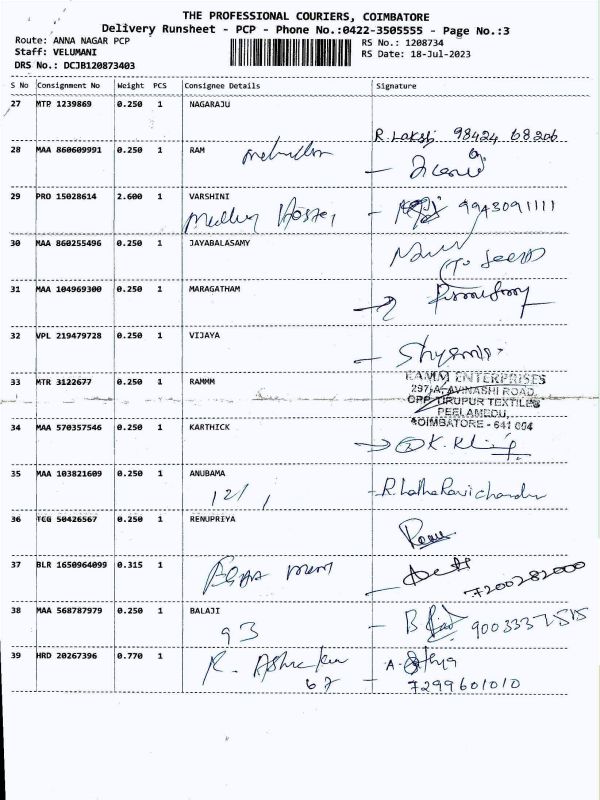 THE PROFESSIONAL COURIERS, COIMBATORE
Delivery Runsheet - PCP - Phone No.:0422-3505555 - Page No.:3
Route: ANNA NAGAR PCP
Staff: VELUMANI
DRS No.: DCJB120873403
RS No.: 1208734
RS Date: 18-Jul-2023
S No Consignment No Weight PCS Consignee Details Signature
27 MTP 1239869 0.250 1 NAGARAJU
98424 68206
28 MAA 860609991 0.250 1 RAM
29 PRO 15028614 2.600 1 VARSHINI
9943091111
30 MAA 860255496 0.250 1 JAYABALASAMY
31 MAA 104969300 0.250 1 MARAGATHAM
32 VPL 219479728 0.250 1 VIJAYA
33 MTR 3122677 0.250 1 RAMMM
ENTERPRISES
297/A, AVINASHI ROAD,
OPP. TIRUPUR TEXTILES
PEELAMEDU,
COIMBATORE - 641 004
34 MAA 570357546 0.250 1 KARTHICK
35 MAA 103821609 0.250 1 ANUBAMA
12/1
R. Latha Ravichandran
36 TCG 50426567 0.250 1 RENUPRIYA
37 BLR 1650964099 0.315 1
7200282000
38 MAA 568787979 0.250 1 BALAJI
93
39 HRD 20267396 0.770 1
67
7299601010